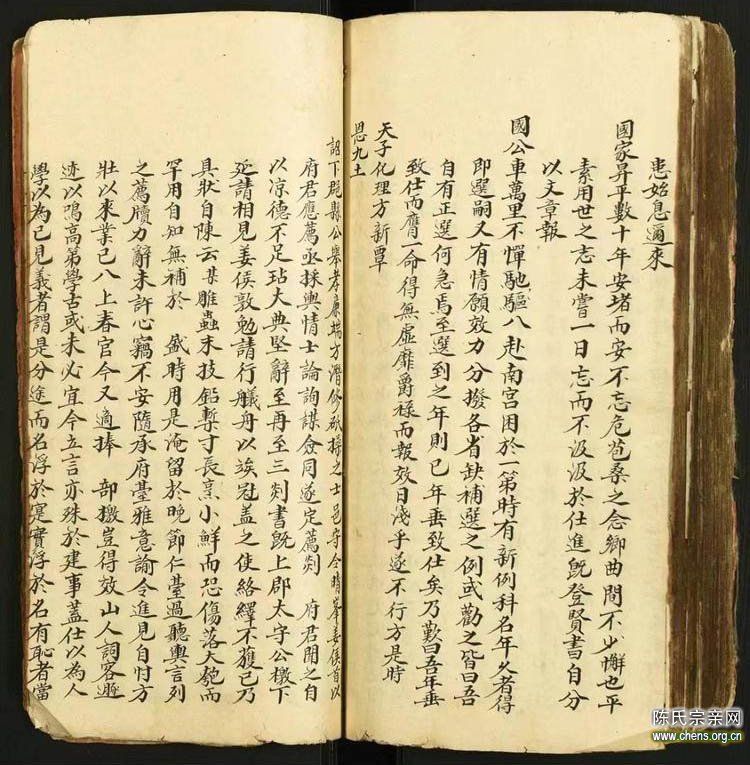 患始息邇來
國家昇平數十年安堵而安不忘危苞桑之念鄉曲間不少懈也平
素用世之志未嘗一日忘而不汲汲於仕進旣登賢書自分
以文章報
國公車萬里不憚馳驅八赴南宮困於一第時有新例科名年久者得
即選嗣又有情願效力分撥各省缺補選之例或勸之皆曰吾
自有正選何急焉至選到之年則已年垂致仕矣乃歎曰吾年垂
致仕而膺一命得無虛靡爵祿而報效日淺乎遂不行方是時
天子化理方新覃
恩九土
詔下郡縣公舉孝廉端方潛修砥操之士邑守令晴峯姜侯首以
府君應薦亟採輿情士論詢謀僉同遂定薦剡 府君聞之自
以凉德不足玷大典堅辭至再至三剡書旣上郡太守公檄下
延請相見姜侯敦勉請行艤舟以竢冠蓋之使絡繹不獲已乃
具狀自陳云某雕蟲末技鉛槧寸長烹小鮮而恐傷落大匏而
罕用自知無補於 盛時用是淹留於晩節仁臺過聽輿言列
之薦牘力辭未許心竊不安隨承府臺雅意諭令進見自忖方
壯以來業已八上春官今又適捧 部檄豈得效山人詞客遯
迹以鳴高第學古或未必宜今立言亦殊於建事蓋仕以為人
學以為己見義者謂是分途而名浮於寔實浮於名有恥者當
陈氏宗亲网
www.chens.org.cn